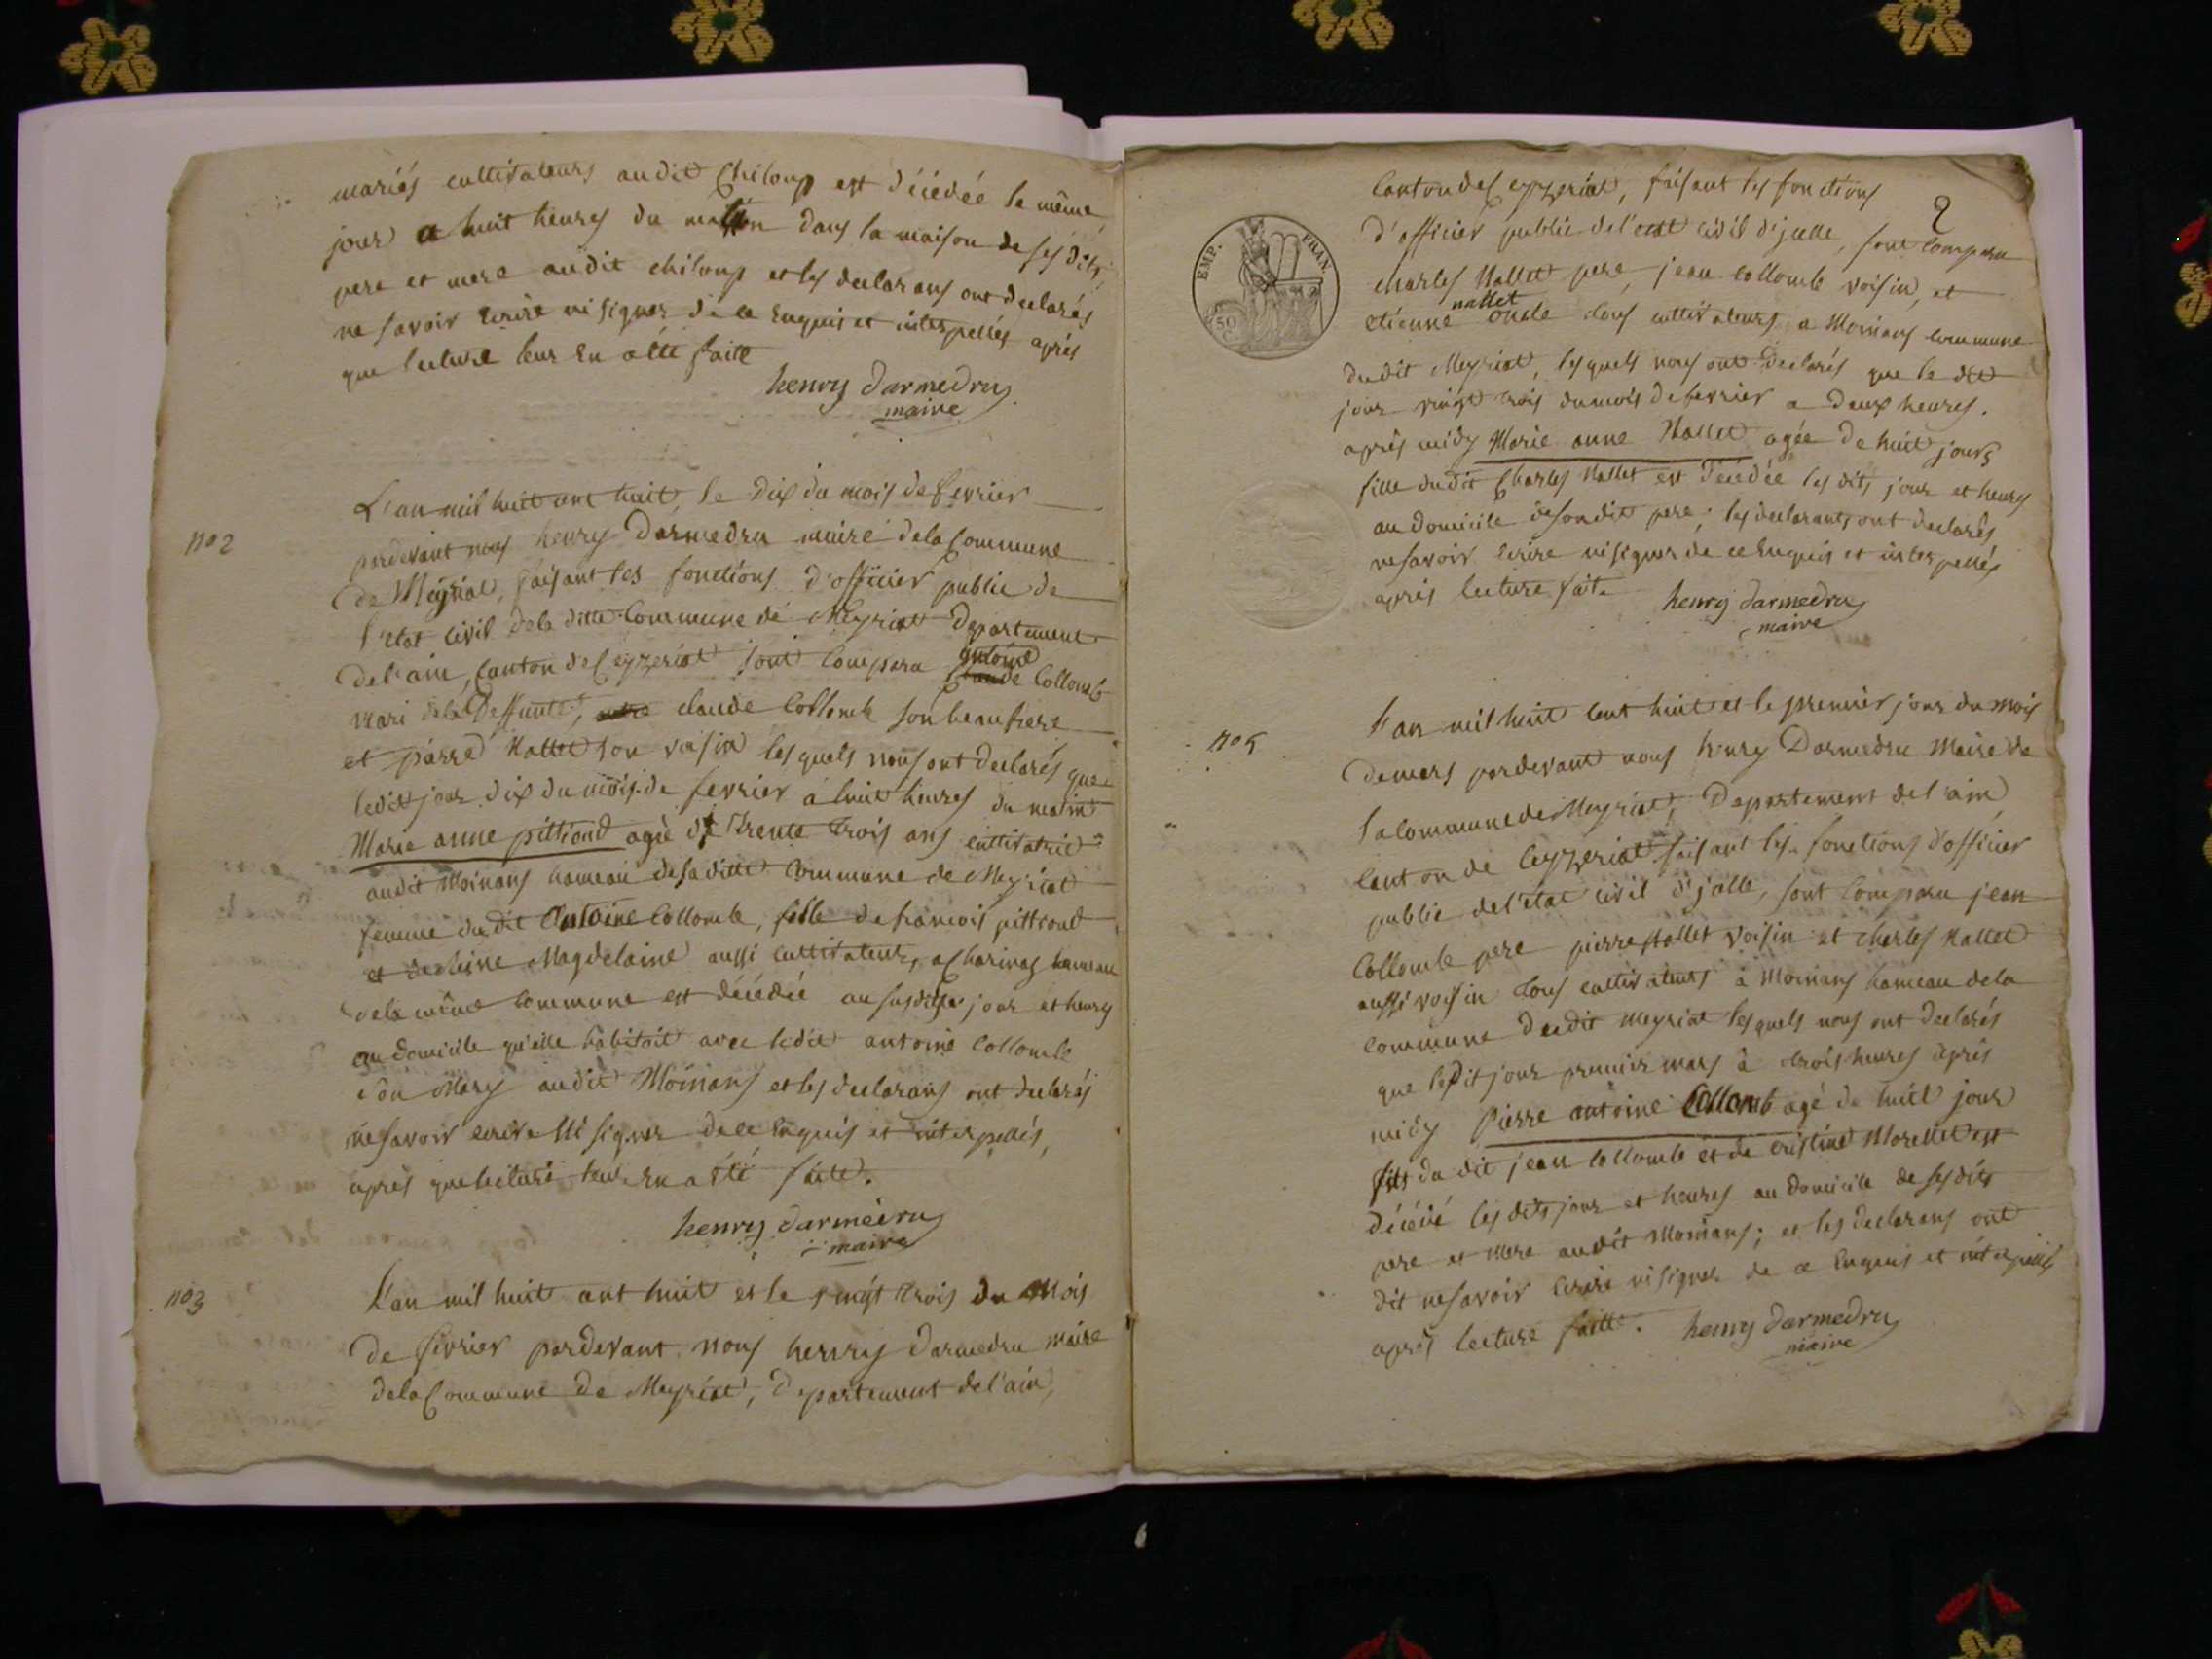 mariés cultivateurs audit Chiloup est décédée le même
jour a huit heures du matin dans la maison de ses dits
pere et mere audit chiloup et les declarans ont declarés
ne savoir écrire ni signer de ce Enquis et interpellés après
que lecture leur En a été faite
henry darmedru
maire
n° 2
L'an mil huit cent huit, le dix du mois de fevrier
pardevant nous henry Darmedru maire de la Commune
de Meyriat, faisant les fonctions d'officier public de
l'etat civil de la ditte Commune de Meyriat Departement
de l'ain, Canton de Ceyzeriat sont Comparu antoine Collomb
mari de la Deffunte, claude Collomb son beaufrere
et pierre Nallet son voisin lesquels nous ont declarés que
ledit jour dix du mois de fevrier a huit heures du matin
Marie anne pittiond agée de trente trois ans cultivatrice
audit Moinans hameau de sa ditte Commune de Meyriat
femme du dit Antoine Collomb, fille de francois pittiond
et de Magdelaine aussi cultivateurs, a Charinas hameau
de la même Commune est décédée au susdits jour et heures
au domicile qu'elle habitoit avec ledit antoine Collomb
son Mary audit Moinans et les declarans ont declarés
ne savoir ecrire Ni signer de ce Enquis et interpellés,
après que lecture leur en a été faitte.
henry darmedru
maire
n° 3
L'an mil huit cent huit et le vingt trois du Mois
de fevrier pardevant nous henry darmedru maire
de la Commune de Meyriat, Departement de l'ain,
2
Canton de Ceyzeriat, faisant les fonctions
d'officier public de l'etat civil d'jcelle, sont Comparu
EMP. FRAN.
50
charles Nallet pere, jean Collomb voisin, et
etienne nallet oncle tous cultivateurs a Moinans commune
dudit Meyriat, lesquels nous ont declarés que le dit
jour vingt trois du mois de fevrier a deux heures.
après midy Marie anne Nallet agée de huit jours
fille dudit Charles Nallet est décédée les dits jour et heures
au domicile de son dit pere; les declarants ont declarés
ne savoir écrire ni signer de ce Enquis et interpellés
après lecture faite
henry darmedru
maire
n° 4
L'an mil huit cent huit et le premier jour du mois
de mars pardevant nous henry Darmedru Maire de
la Commune de Meyriat, Departement de l'ain
Canton de Ceyzeriat faisant les fonctions d'officier
public de l'état civil d'jcelle, sont Comparu jean
Collomb pere pierre Nallet voisin et charles Nallet
aussi voisin tous cultivateurs à Moinans hameau de la
commune dudit meyriat lesquels nous ont declarés
que ledit jour premier mars à trois heures après
midy Pierre antoine Collomb agé de huit jour
fils du dit jean Collomb et de cristine Morellet est
décédé les dits jour et heures au domicile de ses dits
pere et Mere audit Moinans; et les declarans ont
dit ne savoir écrire ni signer de ce Enquis et interpellés
après lecture faitte.
henry darmedru
maire